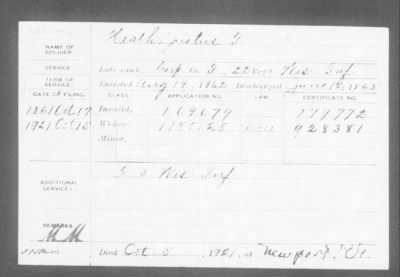 NAME OF SOLDIER: Heath, Justus F.
SERVICE: Late rank, Corp. Co. F, 22 Reg't Wis Inf
TERM OF SERVICE: Enlisted Aug 19, 1862 Discharged June 12, 1865
DATE OF FILING. CLASS. APPLICATION NO. LAW. CERTIFICATE NO.
Oct 17 Invalid, 109679 177772
1921 Oct 15 Widow, 928381
Minor,
ADDITIONAL SERVICES: Wis Inf
REMARKS:
Died Oct 5 1921, at Newport, Vt.